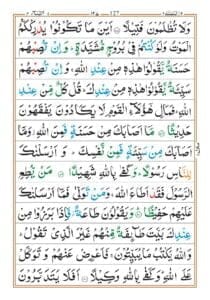 وَلَا تُظْلَمُوْنَ فَتِيْلًا ۝ اَيْنَ مَا تَكُوْنُوْا يُدْرِكْكُّمُ
الْمَوْتُ وَلَوْ كُنْتُمْ فِيْ بُرُوْجٍ مُّشَيَّدَةٍ ؕ وَاِنْ تُصِبْهُمْ
حَسَنَةٌ يَّقُوْلُوْا هٰذِهٖ مِنْ عِنْدِ اللّٰهِ ۚ وَاِنْ تُصِبْهُمْ
سَيِّئَةٌ يَّقُوْلُوْا هٰذِهٖ مِنْ عِنْدِكَ ؕ قُلْ كُلٌّ مِّنْ عِنْدِ
اللّٰهِ ؕ فَمَالِ هٰٓؤُلَآءِ الْقَوْمِ لَا يَكَادُوْنَ يَفْقَهُوْنَ
حَدِيْثًا ۝ مَآ اَصَابَكَ مِنْ حَسَنَةٍ فَمِنَ اللّٰهِ ؗ وَمَآ
اَصَابَكَ مِنْ سَيِّئَةٍ فَمِنْ نَّفْسِكَ ؕ وَاَرْسَلْنٰكَ
لِلنَّاسِ رَسُوْلًا ؕ وَكَفٰى بِاللّٰهِ شَهِيْدًا ۝ مَنْ يُّطِعِ
الرَّسُوْلَ فَقَدْ اَطَاعَ اللّٰهَ ۚ وَمَنْ تَوَلّٰى فَمَآ اَرْسَلْنٰكَ
عَلَيْهِمْ حَفِيْظًا ۝ وَيَقُوْلُوْنَ طَاعَةٌ ؗ فَاِذَا بَرَزُوْا مِنْ
عِنْدِكَ بَيَّتَ طَآئِفَةٌ مِّنْهُمْ غَيْرَ الَّذِيْ تَقُوْلُ ؕ
وَاللّٰهُ يَكْتُبُ مَا يُبَيِّتُوْنَ ۚ فَاَعْرِضْ عَنْهُمْ وَتَوَكَّلْ
عَلَى اللّٰهِ ؕ وَكَفٰى بِاللّٰهِ وَكِيْلًا ۝ اَفَلَا يَتَدَبَّرُوْنَ